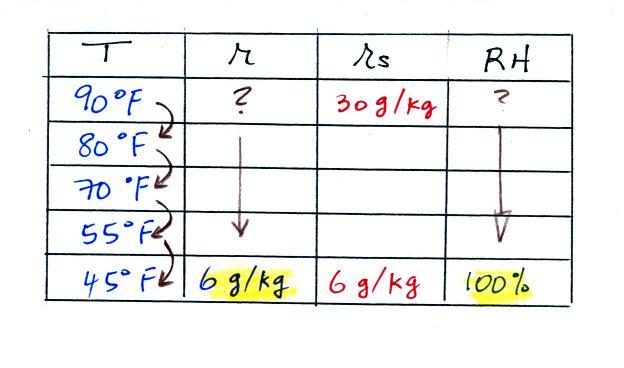 T r rs RH
90°F ? 30 g/kg ?
80°F
70°F
55°F
45°F 6 g/kg 6 g/kg 100%